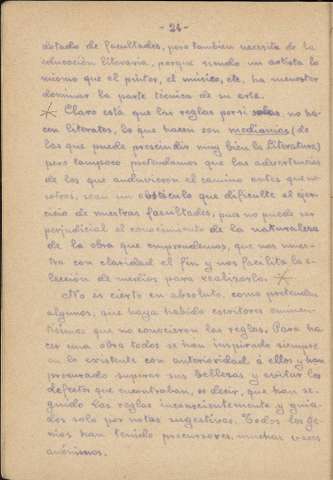 - 24 -
dotado de facultades, pero tambien necesita de la
educación literaria, porque siendo un artista lo
mismo que el pintor, el músico, etc, ha menester
dominar la parte técnica de su arte.
Claro está que las reglas por si solas no ha-
cen literatos, lo que hacen son medianias (de
las que puede prescindir muy bien la Literatura)
pero tampoco pretendamos que las advertencias
de los que anduvieron el camino antes que no-
sotros, sean un obstáculo que dificulte el ejer-
cicio de nuestras facultades, pues no puede ser
perjudicial el conocimiento de la naturaleza
de la obra que emprendemos, que nos mues-
tra con claridad el fin y nos facilita la e-
lección de medios para realizarla.
No es cierto en absoluto, como pretenden
algunos, que haya habido escritores eminen-
tísimos que no conocieron las reglas. Para ha-
cer una obra todos se han inspirado siempre
en lo existente con anterioridad á ellos y han
procurado superar sus bellezas y evitar los
defectos que encontraban, es decir, que han se-
guido las reglas inconscientemente y guia-
dos solo por notas sugestivas. Todos los ge-
nios han tenido precursores, muchas veces
anónimos.